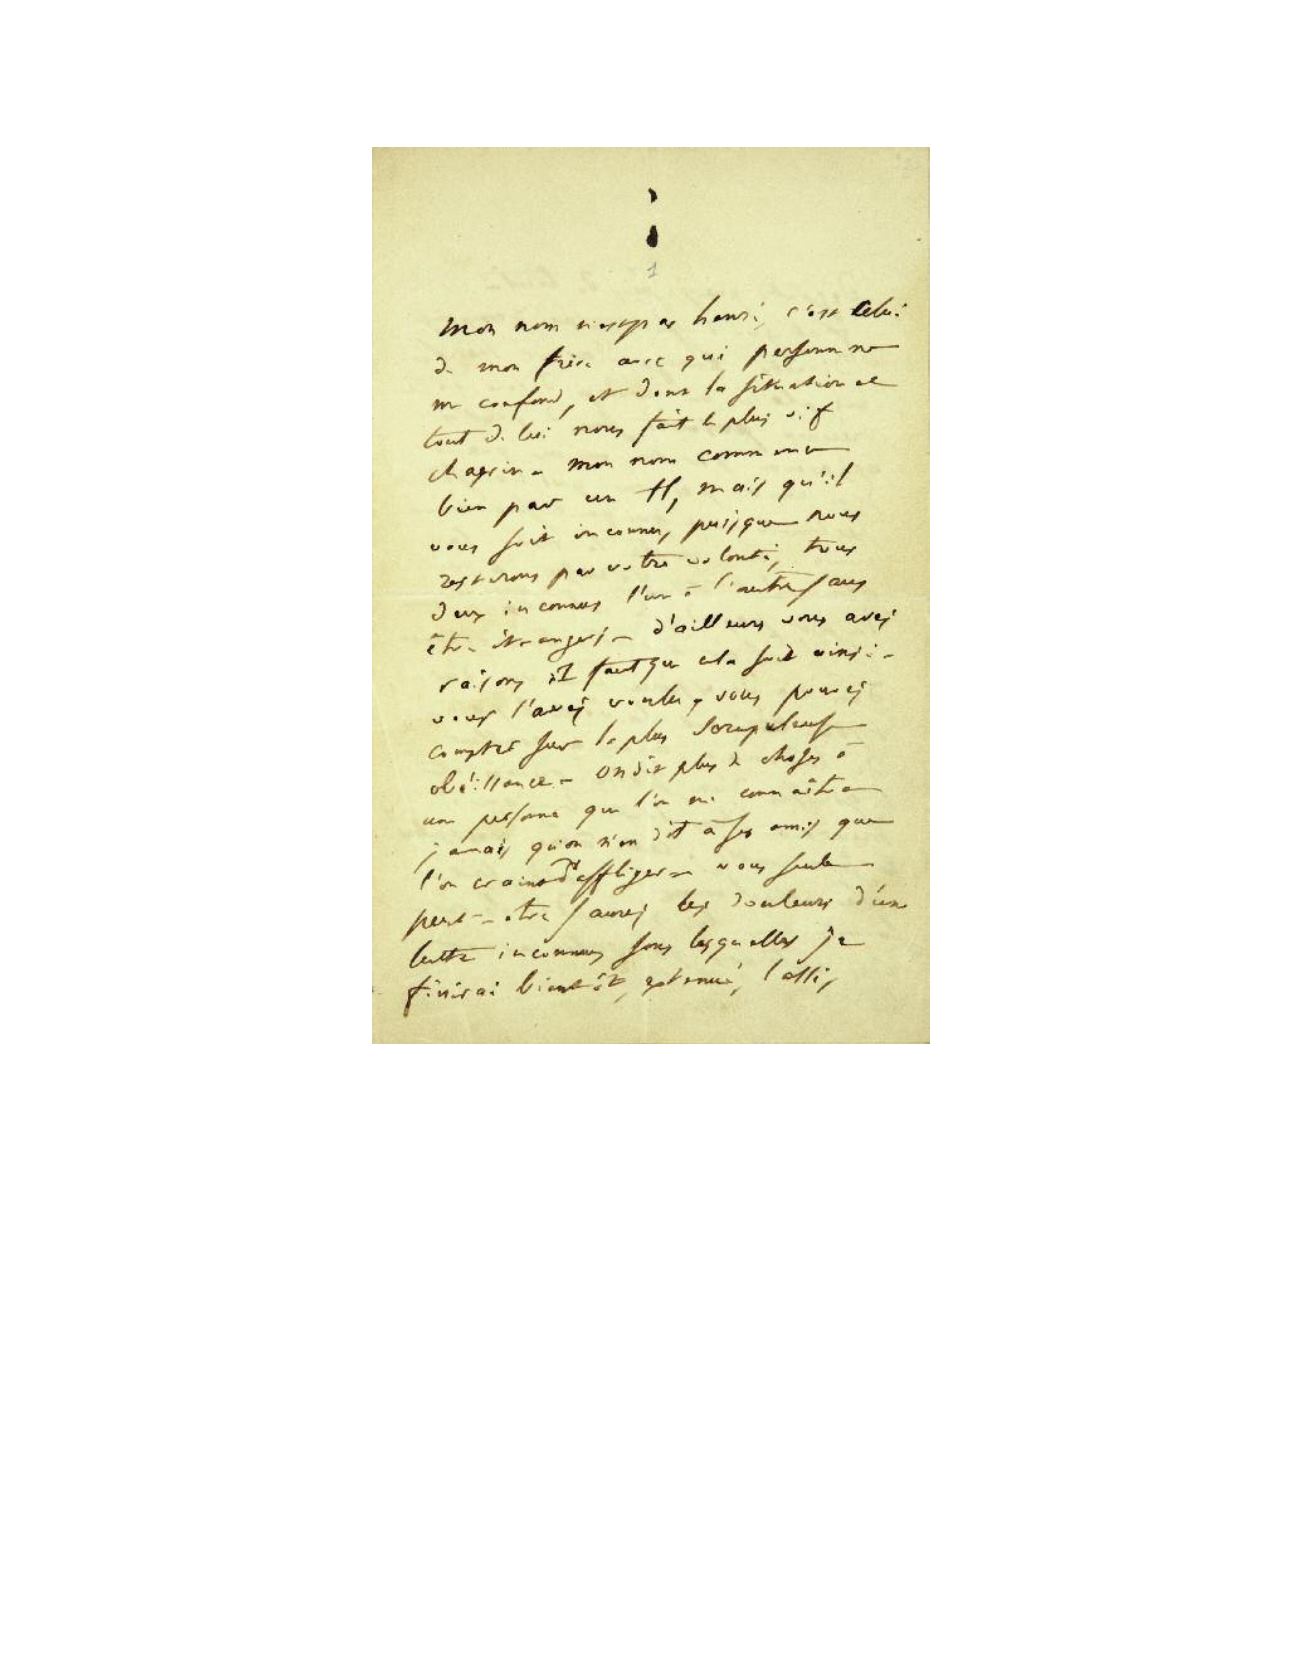 1
mon nom n'est pas henri, c'est celui
de mon frère avec qui personne ne
me confond, et dont la situation et
tout de lui nous fait le plus vif
chagrin – mon nom commence
bien par un H, mais qu'il
vous soit inconnu, puisque nous
resterons par votre volonté, tous
deux inconnus l'un à l'autre sans
être étrangers – d'ailleurs vous avez
raison, il faut que cela soit ainsi –
vous l'avez voulu, vous pouvez
compter sur la plus scrupuleuse
obéissance – on dit plus de choses à
une personne que l'on ne connaîtra
jamais qu'on n'en dit à ses amis que
l'on craint d'affliger – vous seule
peut-être saurez les douleurs d'une
lutte inconnue sous lesquelles je
finirai bientôt, exténué, lassé,